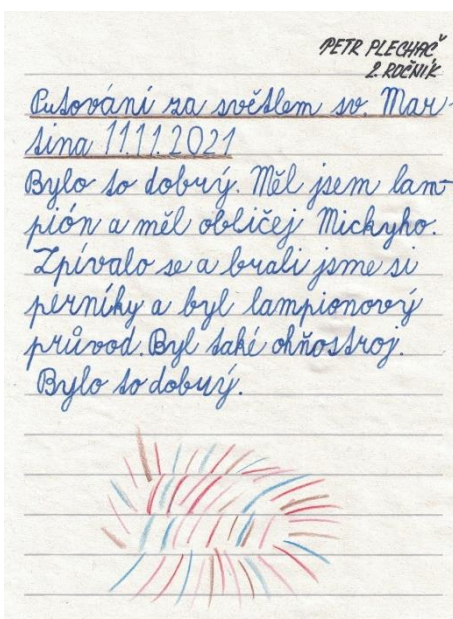 PETR PLECHAČ
2. ROČNÍK
Putování za světlem sv. Mar-
tina 11.11.2021
Bylo to dobrý. Měl jsem lam-
pión a měl obličej Mickyho.
Zpívalo se a brali jsme si
perníky a byl lampionový
průvod. Byl také ohňostroj.
Bylo to dobrý.